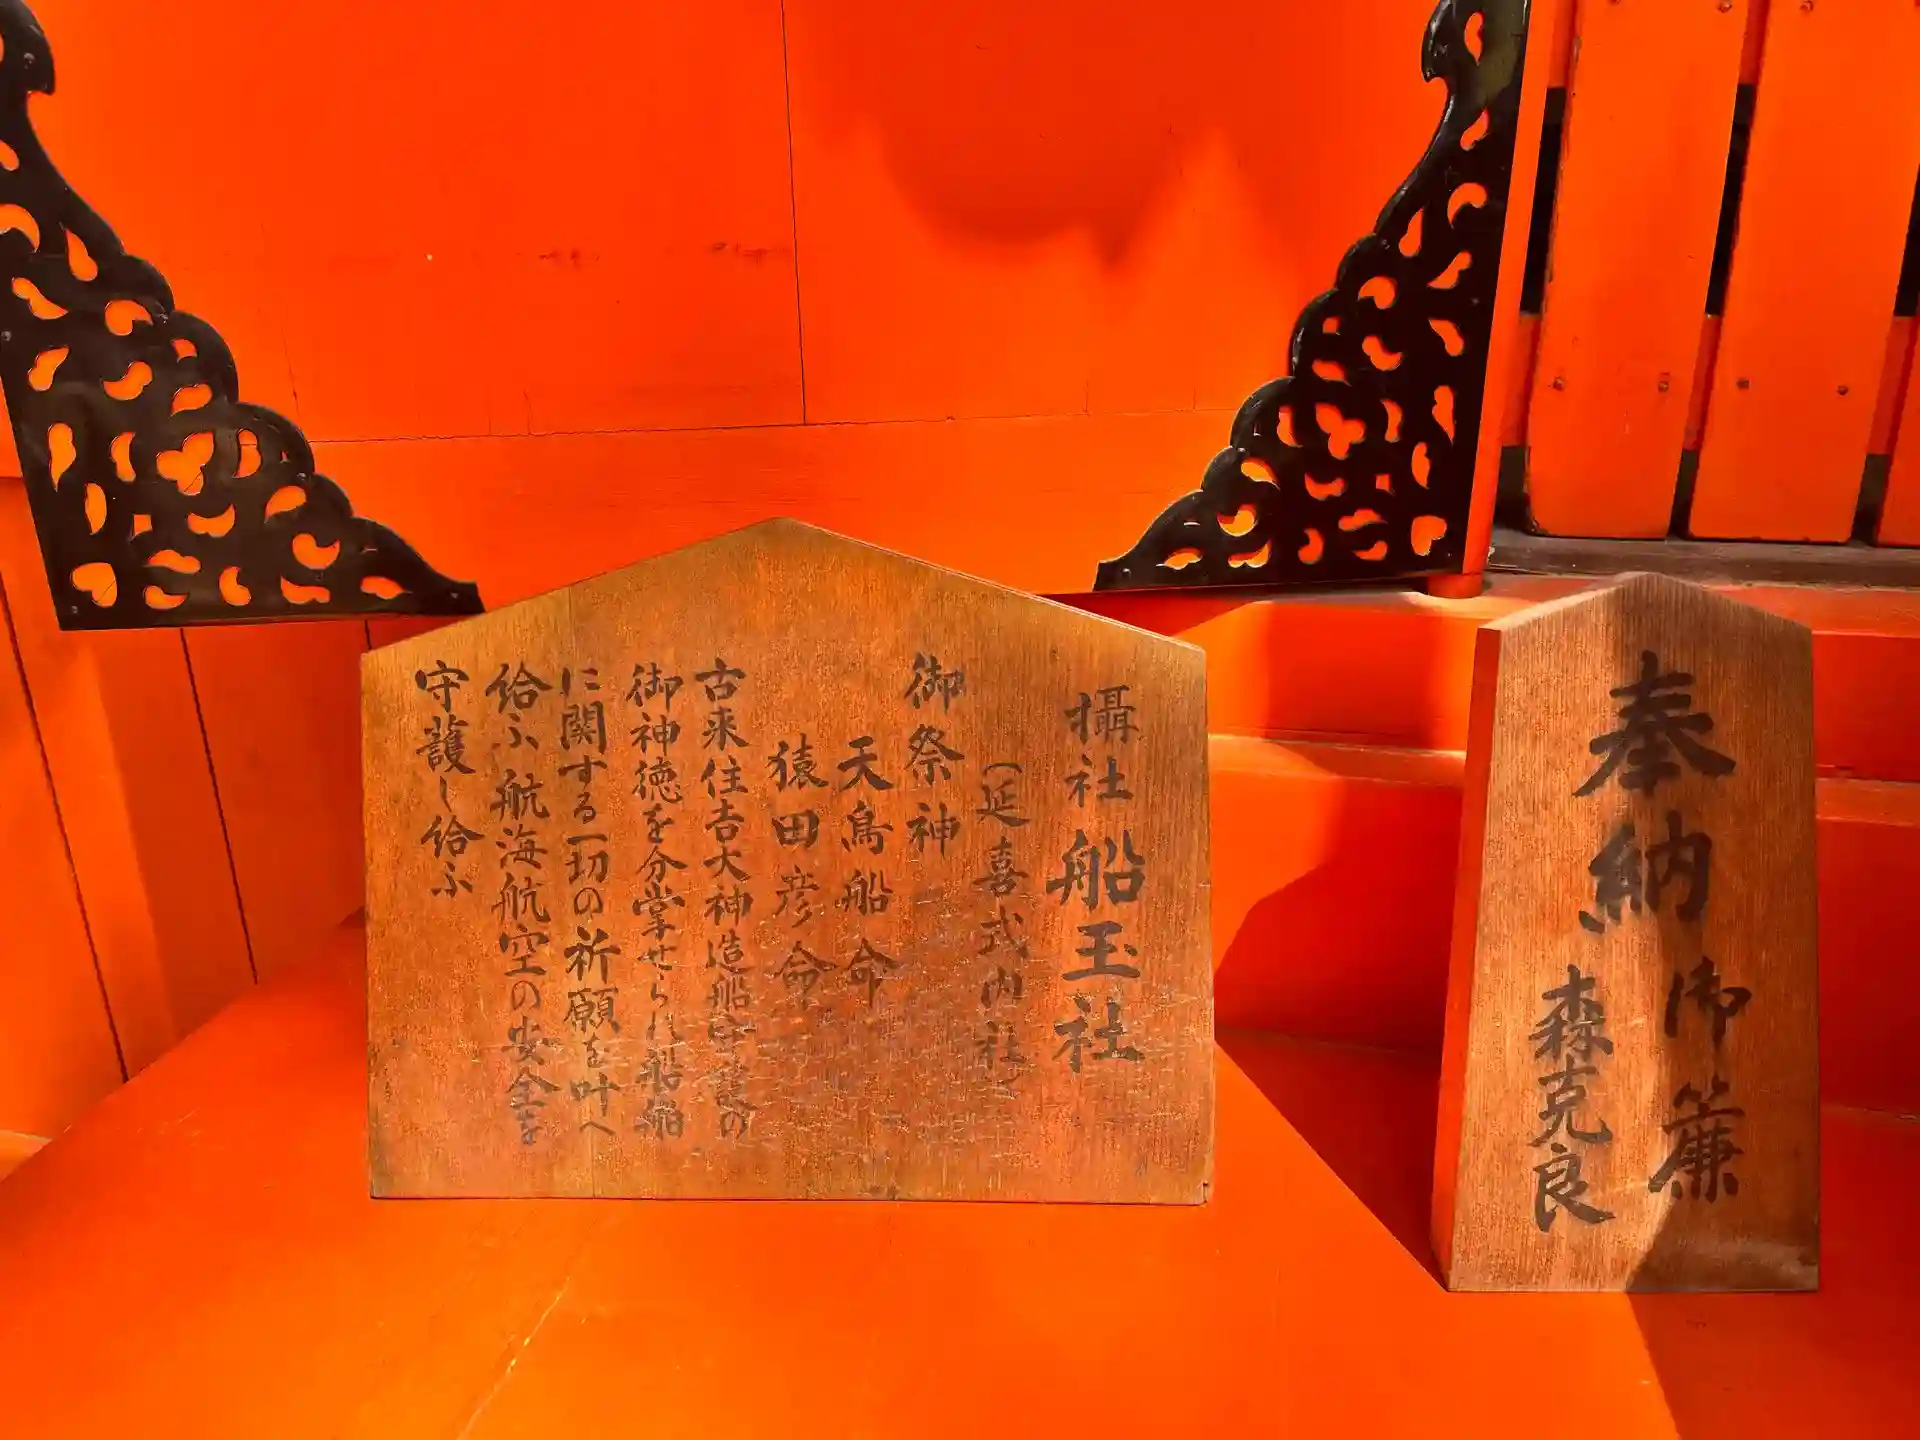 攝社 船玉社
(延喜式内社)
御祭神
天鳥船命
猿田彦命
古来住吉大神造船守護の
御神徳を分掌せられ船舶
に関する一切の祈願を叶へ
給ふ航海航空の安全を
守護し給ふ
奉納 御簾
森克良